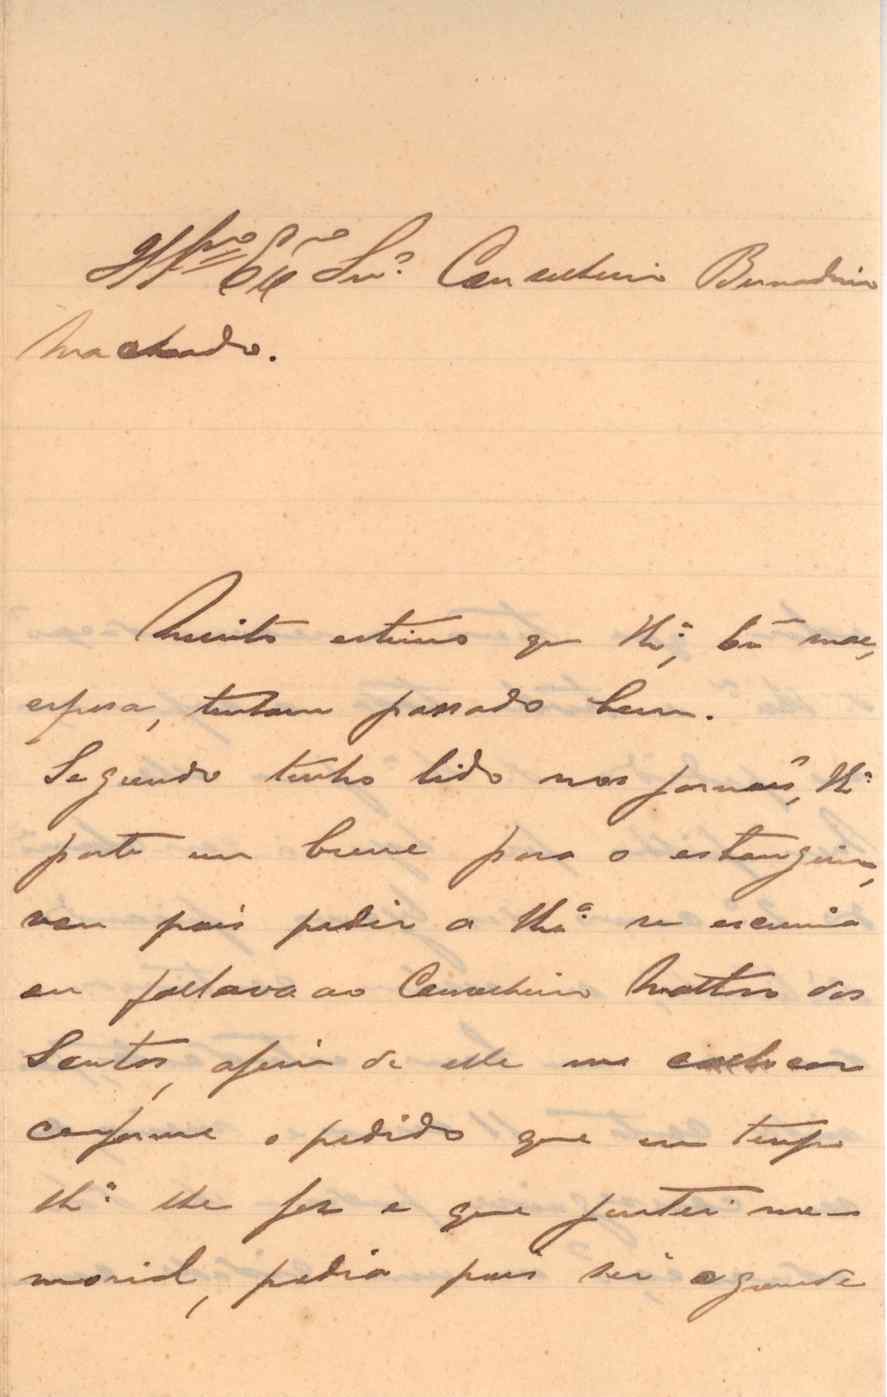 Illmo Exmo Snr. Conselheiro Bernardino
Machado.
Muito estimo que V. Exa., Exma mae,
esposa, tenham passado bem.
Segundo tenho lido nos jornaes,
parte em breve para o estrangeiro,
venho pois pedir a se escrevia
ou fallava ao Conselheiro Mattoso dos
Santos, afim de elle me collocar
conforme o pedido que em tempo
lhe fez e que juntei me-
morial, pedia pois ser a grande